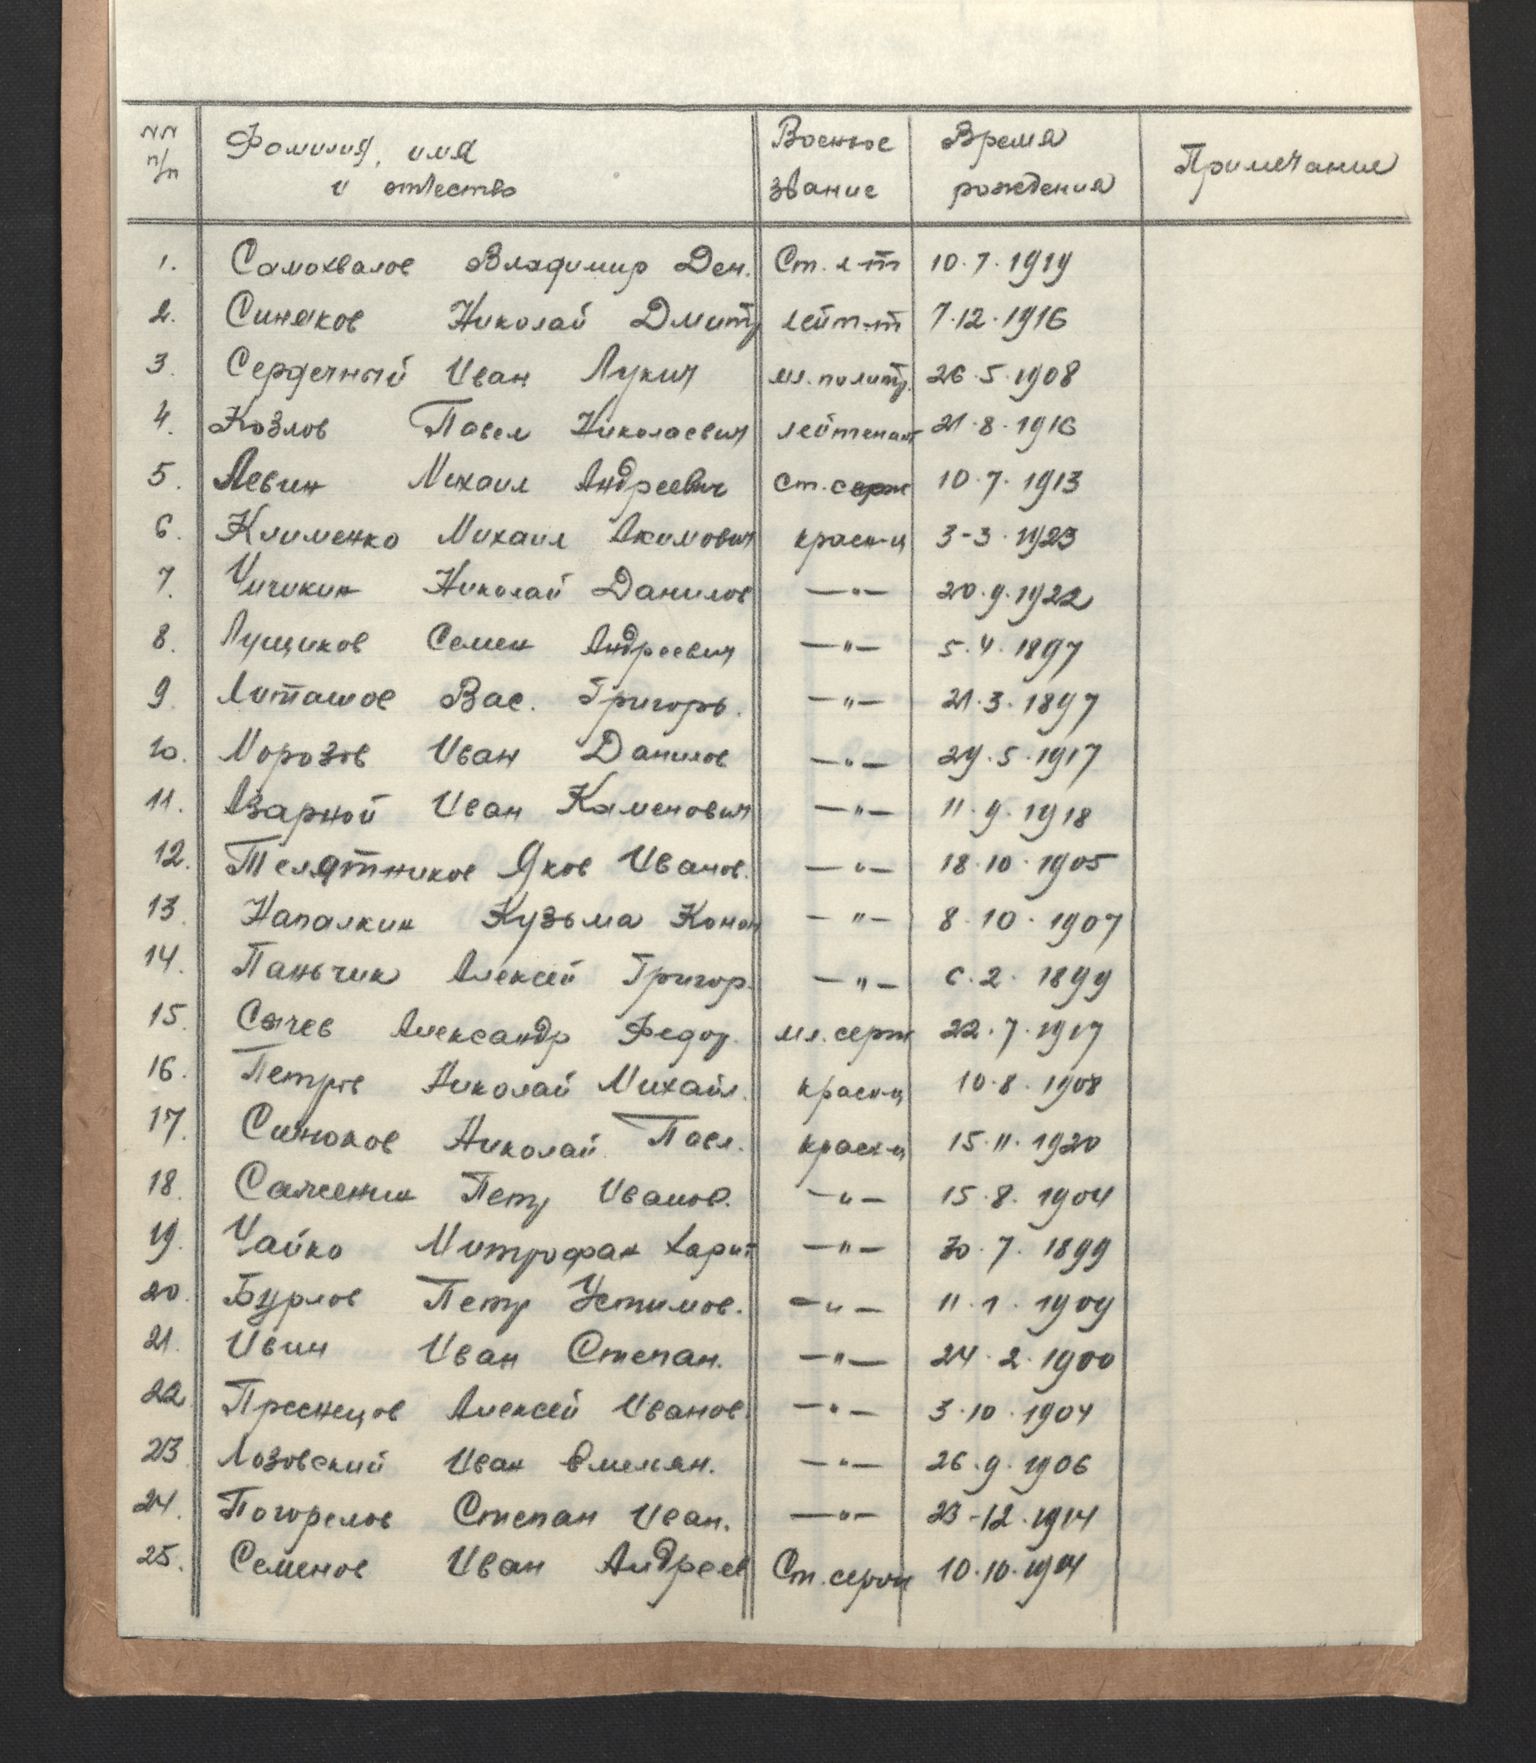 №№ п/п | Фамилия, имя и отчество | Военное звание | Время рождения | Примечание
1. Самохвалов Владимир Ден. Ст. л-т 10.7.1919
2. Синяков Николай Дмитр лейт-т 7.12.1916
3. Сердечный Иван Лукич мл. политр. 26.5.1908
4. Козлов Павел Николаевич лейтенант 21.8.1916
5. Левин Михаил Андреевич ст. серж 10.7.1913
6. Клименко Михаил Акимович красн-ц 3-3.1923
7. Чичикин Николай Данилов —"— 20.9.1922
8. Лущиков Семен Андреевич —"— 5.4.1897
9. Литашов Вас. Григорь. —"— 21.3.1897
10. Морозов Иван Данилов —"— 29.5.1917
11. Азарной Иван Каменович —"— 11.9.1918
12. Телятников Яков Иванов. —"— 18.10.1905
13. Напалкин Кузьма Конон —"— 8.10.1907
14. Паньчик Алексей Григор. —"— 6.2.1899
15. Сычев Александр Федор. мл. серж 22.7.1917
16. Петров Николай Михайл. красн-ц 10.8.1908
17. Синюков Николай Павл. красн-ц 15.11.1920
18. Саженин Петр Иванов. —"— 15.8.1904
19. Чайко Митрофан Харит —"— 30.7.1899
20. Бурлов Петр Устимов. —"— 11.1.1909
21. Ивин Иван Степан. —"— 24.2.1900
22. Преснецов Алексей Иванов. —"— 3.10.1904
23. Лозовский Иван Емельян. —"— 26.9.1906
24. Погорелов Степан Иван. —"— 23-12.1914
25. Семенов Иван Андреев Ст. серж 10.10.1904